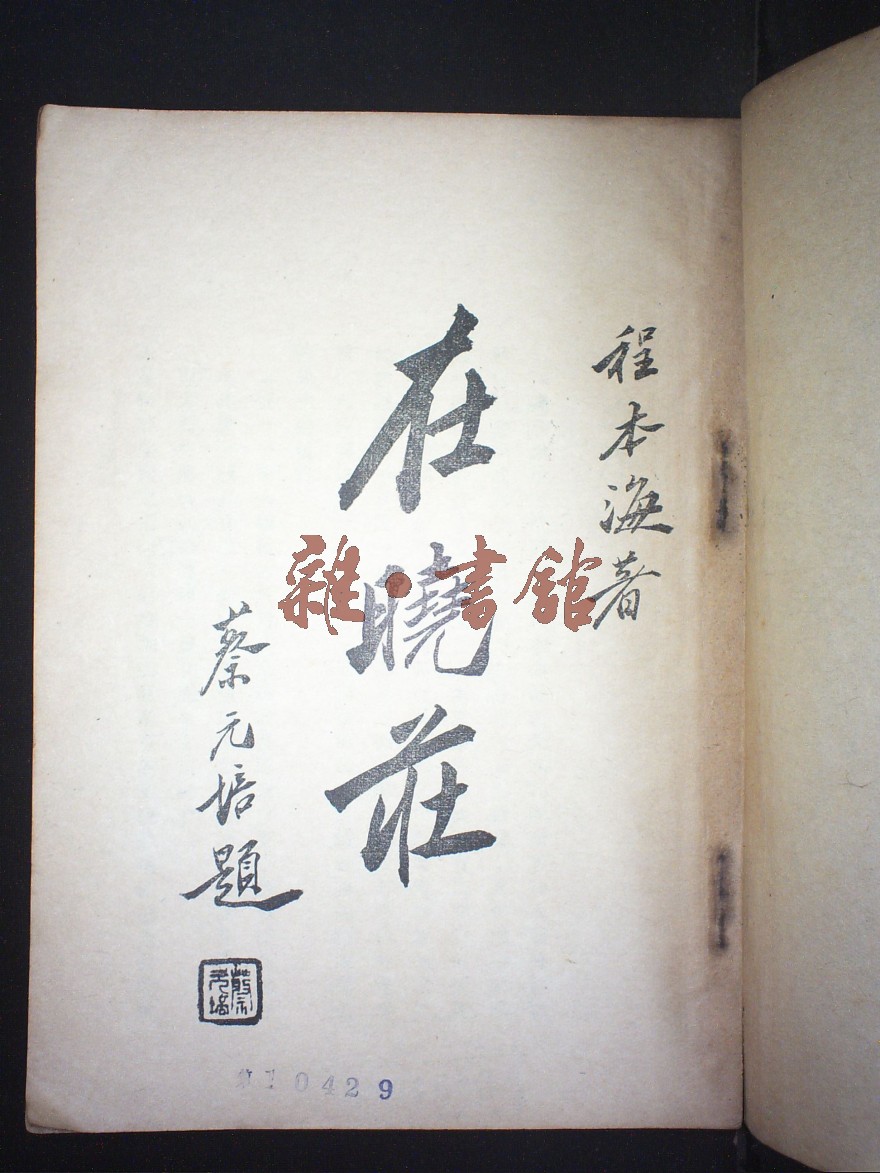 程本海著
在曉莊
蔡元培題
蔡元培
雜·書館
10429